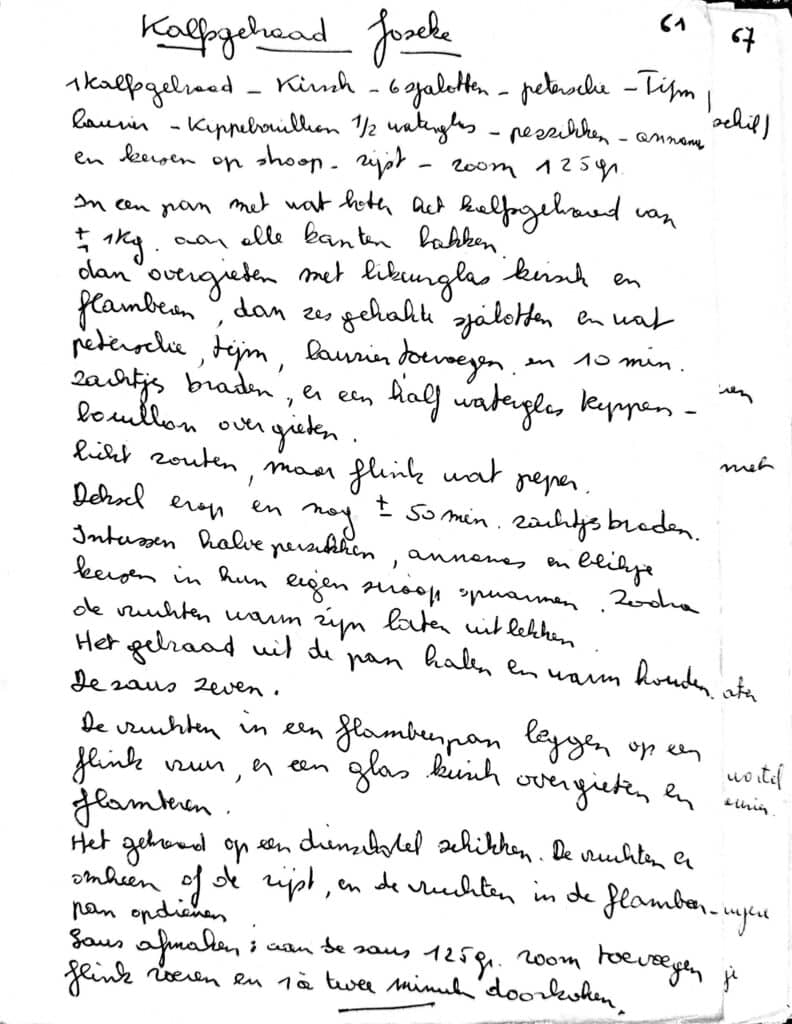 Kalfsgebraad Joseke 61
67
1 kalfsgebraad - Kirsch - 6 sjalotten - peterselie - Tijm
laurier - Kippebouillon 1/2 waterglas - perzikken - annanas
schil)
en kersen op siroop - rijst - room 125gr.
In een pan met wat boter het kalfsgebraad van
± 1Kg. aan alle kanten bakken.
dan overgieten met likeurglas kirsch en
flamberen, dan zes gehakte sjalotten en wat
peterselie, tijm, laurier toevoegen en 10 min.
zachtjes braden, er een half waterglas kippen-
bouillon overgieten.
licht zouten, maar flink wat peper.
met
Deksel erop en nog ± 50 min. zachtjes braden.
Intussen halve perzikken, annanas en blikje
kersen in hun eigen siroop opwarmen. Zodra
de vruchten warm zijn laten uitlekken.
Het gebraad uit de pan halen en warm houden.
De saus zeven.
De vruchten in een flambeerpan leggen op een
flink vuur, er een glas kirsch overgieten en
wortel
flamberen.
Het gebraad op een dienschotel schikken. De vruchten er
omheen of de rijst, en de vruchten in de flambeer-
pan opdienen.
Saus afmaken: aan de saus 125gr. room toevoegen
flink roeren en 1 à twee minuten doorkoken.